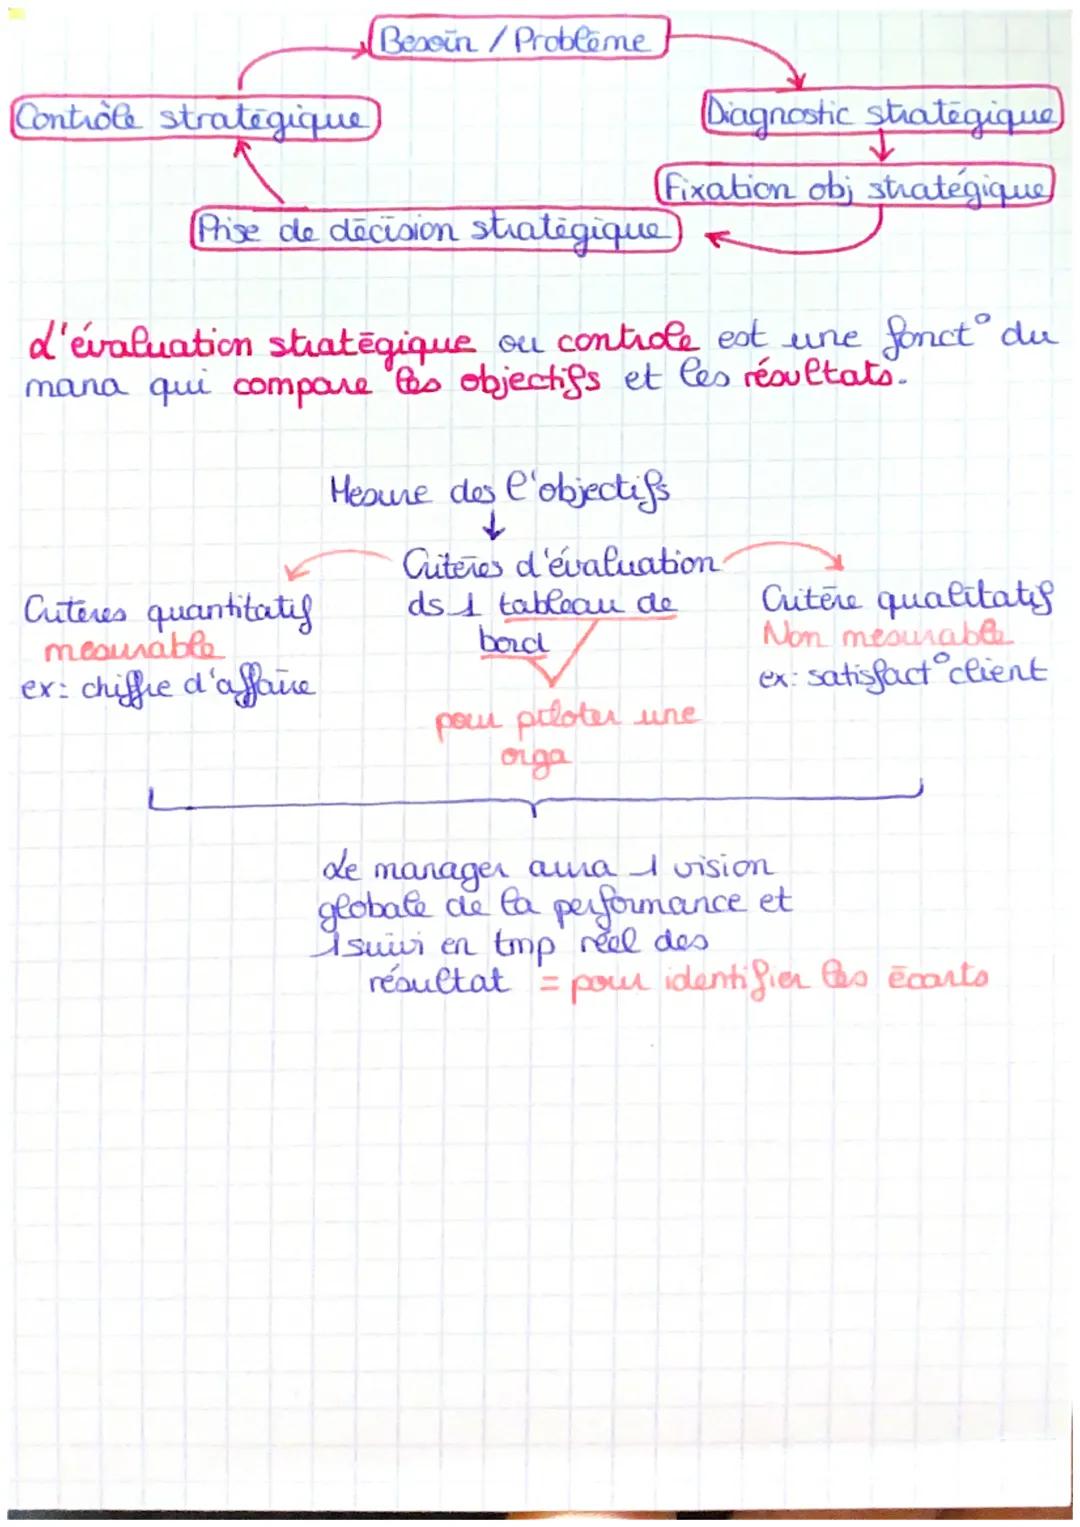 Besoin / Problème
Contrôle stratégique
Diagnostic stratégique
Fixation obj stratégique
Prise de décision stratégique
L'évaluation stratégique ou controle est une fonct° du
mana qui compare les objectifs et les résultats.
Mesure des l'objectifs
Critères d'évaluation
ds 1 tableau de
bord
pour piloter une
orga
Critères quantitatif
mesurable
ex: chiffre d'affaire
Critère qualitatif
Non mesurable
ex: satisfact° client
Le manager aura 1 vision
globale de la performance et
1 suivi en tmp réel des
résultat = pour identifier les écarts